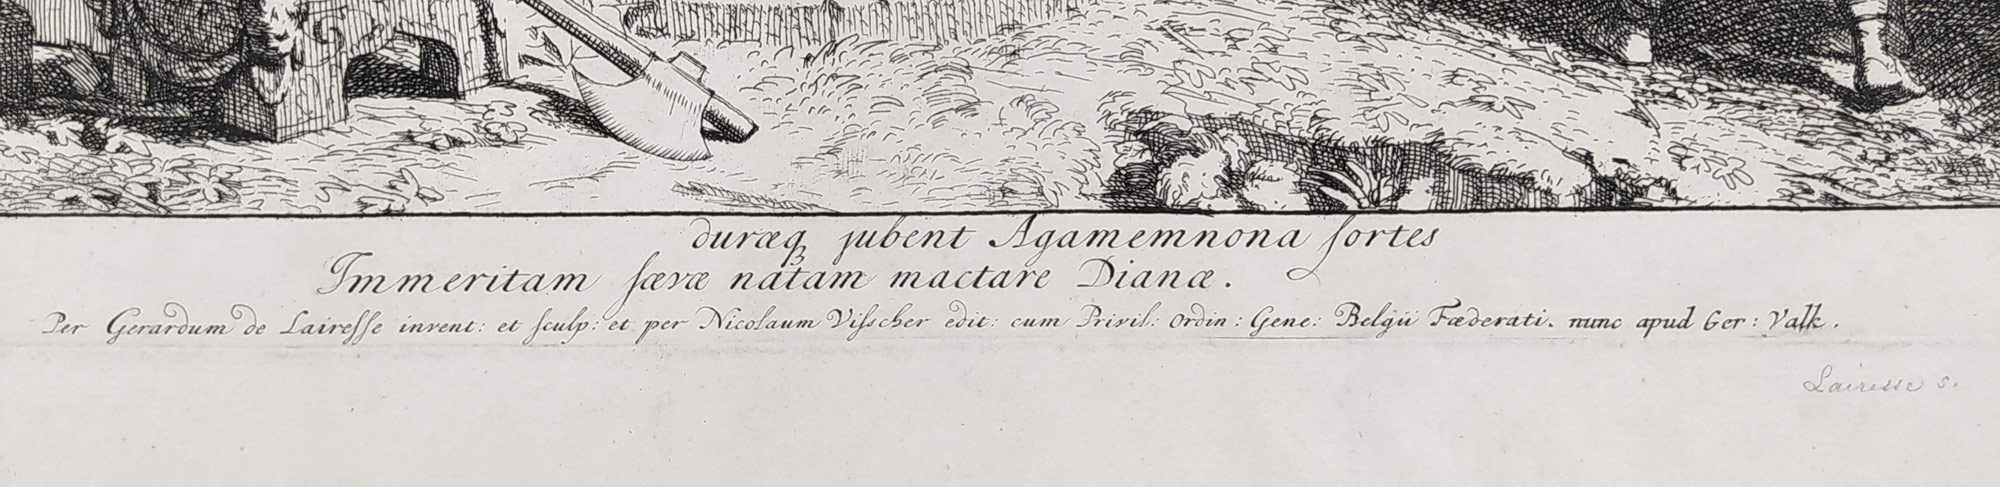 duræq jubent Agamemnona sortes
Immeritam sævæ natam mactare Dianæ.
Per Gerardum de Lairesse invent: et sculp: et per Nicolaum Visscher edit: cum Privil: Ordin: Gene: Belgii Fæderati. nunc apud Ger: Valk.
Lairesse s.